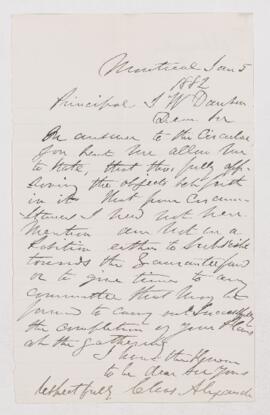 Montreal Jan 5
1882
Principal J W Dawson
Dear Sir
In answer to the Circular
you sent me allow me
to state, that tho fully app-
roving the objects set forth
in it that from Circum-
stances I need not here
Mention am not in a
Position either to Subscribe
towards the Guarantee fund
or to give time to any
committee that may be
formed to carry out Successfully
the completion of your Plans
at the gathering
I have the Honour
to be dear Sir Yours
respectfully Chas Alexander